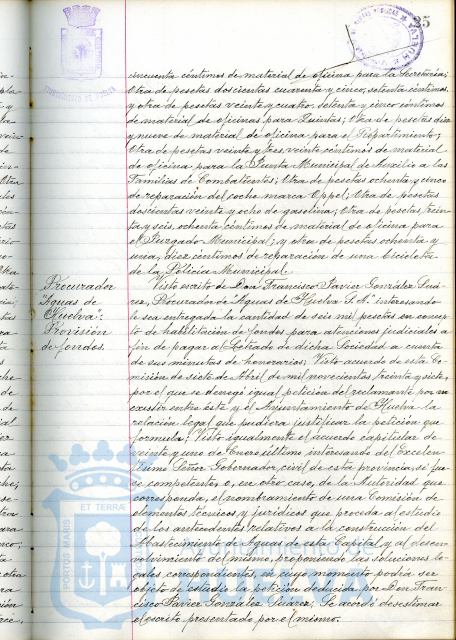 25
cincuenta céntimos de material de oficina para la Secretaría;
Otra de pesetas doscientas cuarenta y cinco, setenta céntimos
y otra de pesetas veinte y cuatro, setenta y cinco céntimos
de material de oficinas para Quintas; Otra de pesetas diez
y nueve de material de oficina para el Repartimiento;
Otra de pesetas veinte y tres, veinte céntimos de material
de oficina para la Junta Municipal de Auxilio a las
Familias de Combatientes; Otra de pesetas ochenta y cinco
de reparación del coche marca Oppel; Otra de pesetas
doscientas veinte y ocho de gasolina; Otra de pesetas trein-
ta y seis, ochenta céntimos de material de oficina para
el Juzgado Municipal; y otra de pesetas ochenta y
una, diez céntimos de reparación de una bicicleta
de la Policía Municipal.
Procurador
"Aguas de
Huelva".
Provisión
de fondos.
Visto escrito de Don Francisco Javier González Suá-
rez, Procurador de "Aguas de Huelva S. A." interesando
le sea entregada la cantidad de seis mil pesetas en concep-
to de habilitación de fondos para atenciones judiciales a
fin de pagar al Letrado de dicha Sociedad a cuenta
de sus minutas de honorarios; Visto acuerdo de esta Co-
misión de siete de Abril de mil novecientos treinta y siete,
por el que se denegó igual petición del reclamante, por no
existir entre éste y el Ayuntamiento de Huelva la
relación legal que pudiera justificar la petición que
formula; Visto igualmente el acuerdo capitular de
veinte y uno de Enero último interesando del Excelen-
tísimo Señor Gobernador civil de esta provincia, si fue-
se competente o, en otro caso, de la Autoridad que
corresponda, el nombramiento de una Comisión de
elementos técnicos y jurídicos que proceda al estudio
de los antecedentes relativos a la construcción del
Abastecimiento de Aguas de esta Capital y al desen-
volvimiento del mismo, proponiendo las soluciones le-
gales correspondientes, en cuyo momento podría ser
objeto de estudio la petición deducida por Don Fran-
cisco Javier González Suárez, Se acordó desestimar
el escrito presentado por el mismo.
PORTUS MARIS
ET TERRÆ
Ayuntamiento de